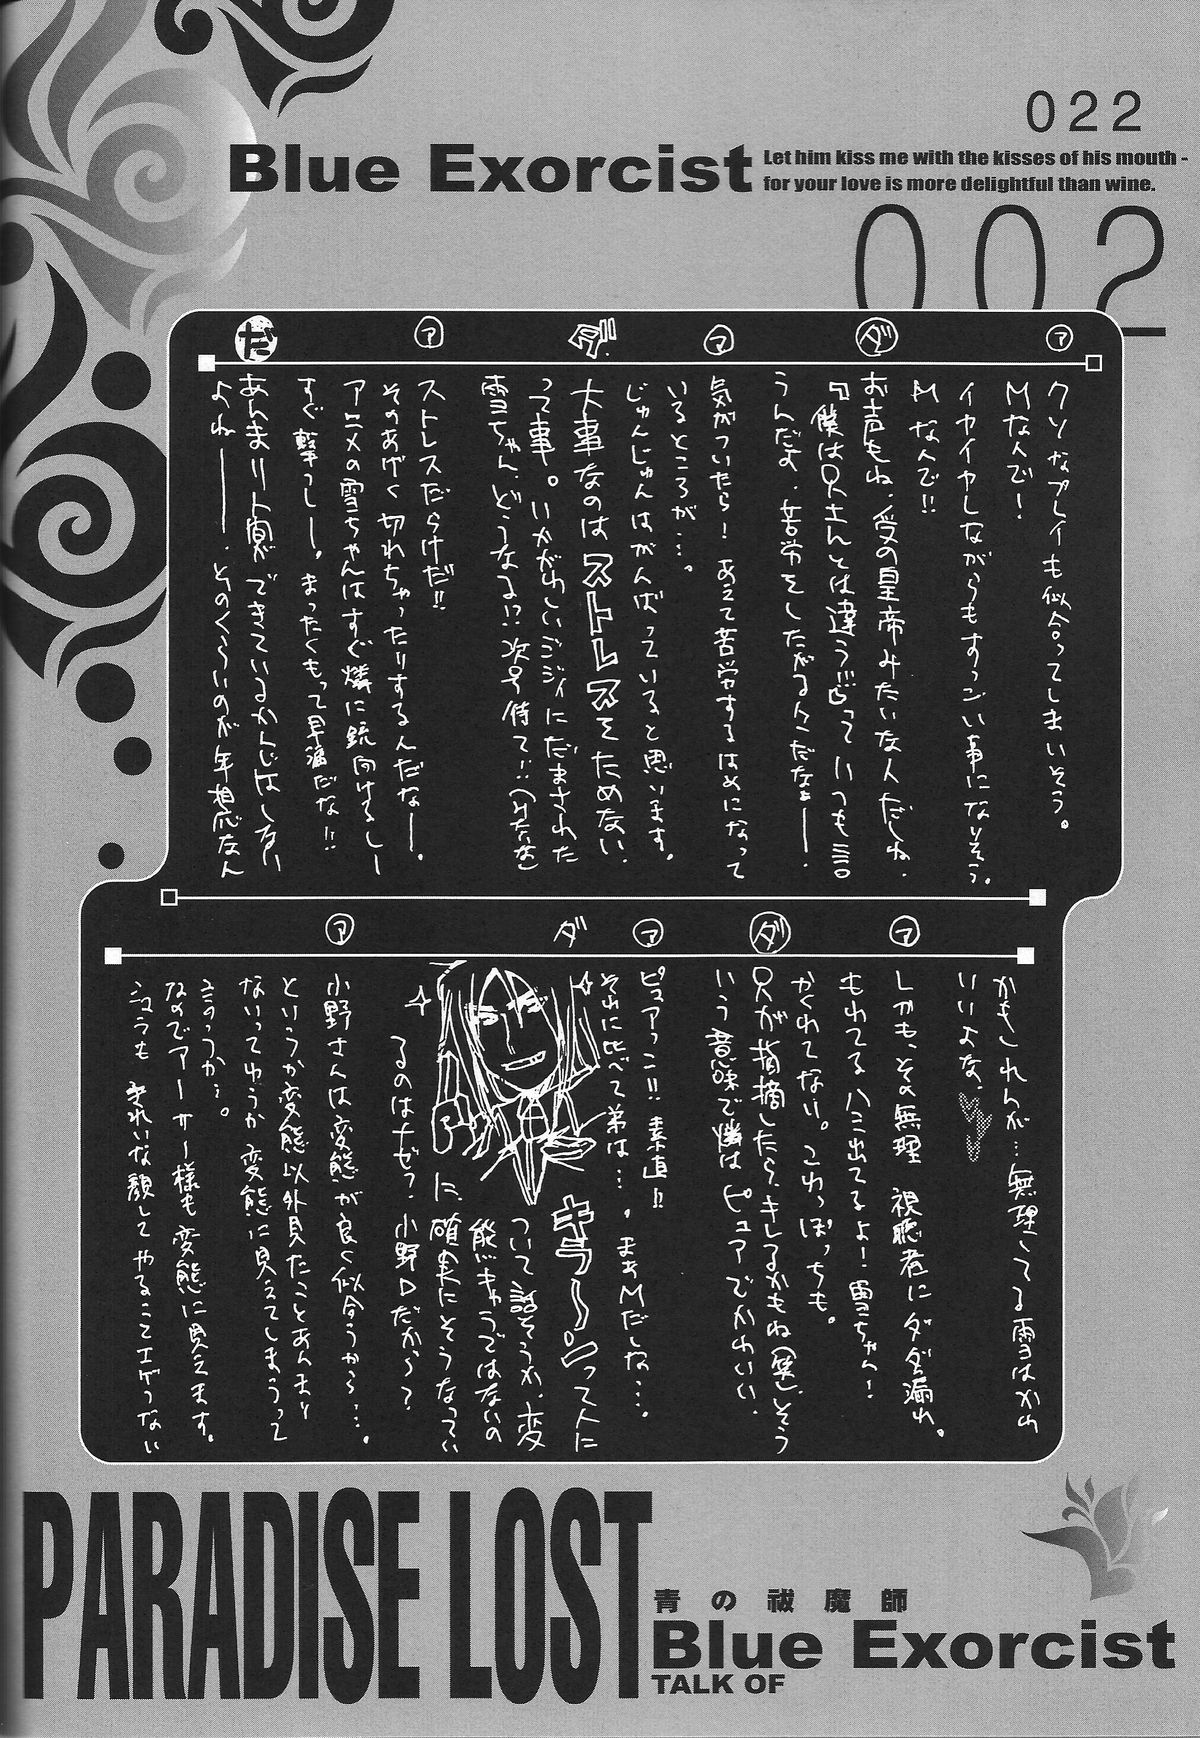 022
Blue Exorcist
Let him kiss me with the kisses of his mouth -
for your love is more delightful than wine.
002
ア
クソなプレイも似合ってしまいそう。
Mなんで!
イヤイヤしながらもすっごい事になりそう。
Mなんで!!
ダ
お声もね、受の皇帝みたいな人だしね、
『僕は兄さんとは違う!!!』って いつも言
うんだよ、苦労をしたがる人だなぁー。
ア
気がついたら! あえて苦労するはめになって
いるところが…。
じゅんじゅんはがんばっていると思います。
ダ
大事なのはストレスをためない、
って事。いかがわしいジジイにだまされた
雪ちゃん、どうなる!? 次号待て!!
ア
ストレスだらけだ!!
そのあげく切れちゃったりするんだなー。
アニメの雪ちゃんはすぐ燐に銃向けるしー
すぐ撃つしー。まったくもって早漏だな!!
だ
あんまり人間ができているかんじはしない
よねー、そのくらいのが年相応なん
かもしれんが…無理してる雪はかわ
いいよな、
ア
しかも、その無理 視聴者にダダ漏れ。
もれてる ハミ出てるよ! 雪ちゃん!
かくれてない。これっぽっちも。
ダ
兄が指摘したら、キレるかもね(笑)そう
いう意味で燐はピュアでかわいい、
ア
ピュアっこ!! 素直!!
それに比べて弟は…。まぁMだしな…。
ダ
キラ〜ンって人に
ついて話そうか、変
態キャラではないの
に、確実にそうなってい
るのはナゼ? 小野Dだから〜?
ア
小野さんは変態が良く似合うから…。
というか変態以外見たことあんまり
ないってゆうか変態に見えてしまうって
ゆうか…。
なのでアーサー様も変態に見えます。
シュラも きれいな顔して やること エゲつない
PARADISE LOST
青の祓魔師
Blue Exorcist
TALK OF